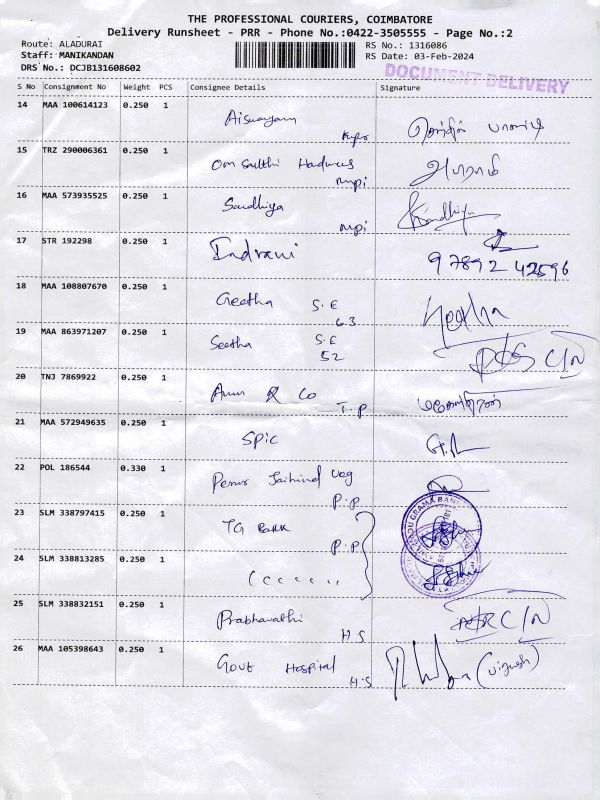 THE PROFESSIONAL COURIERS, COIMBATORE
Delivery Runsheet - PRR - Phone No.:0422-3505555 - Page No.:2
Route: ALADURAI RS No.: 1316086
Staff: MANIKANDAN RS Date: 03-Feb-2024
DRS No.: DCJB131608602 DOCUMENT DELIVERY
S No Consignment No Weight PCS Consignee Details Signature
14 MAA 100614123 0.250 1
15 TRZ 290006361 0.250 1
16 MAA 573935525 0.250 1
Sandhiya
17 STR 192298 0.250 1
Indrani
97892 42596
18 MAA 108807670 0.250 1
Geetha S.E
63 Geetha
19 MAA 863971207 0.250 1
Seetha S.E
52 C/N
20 TNJ 7869922 0.250 1
Arun & Co
T.P
21 MAA 572949635 0.250 1
SPIC
22 POL 186544 0.330 1
Jaihind
P.P
23 SLM 338797415 0.250 1
TG Bank
P.P
GRAMA BANK
24 SLM 338813285 0.250 1
25 SLM 338832151 0.250 1
Prabhavathi C/N
H S
26 MAA 105398643 0.250 1
Govt Hospital
H S